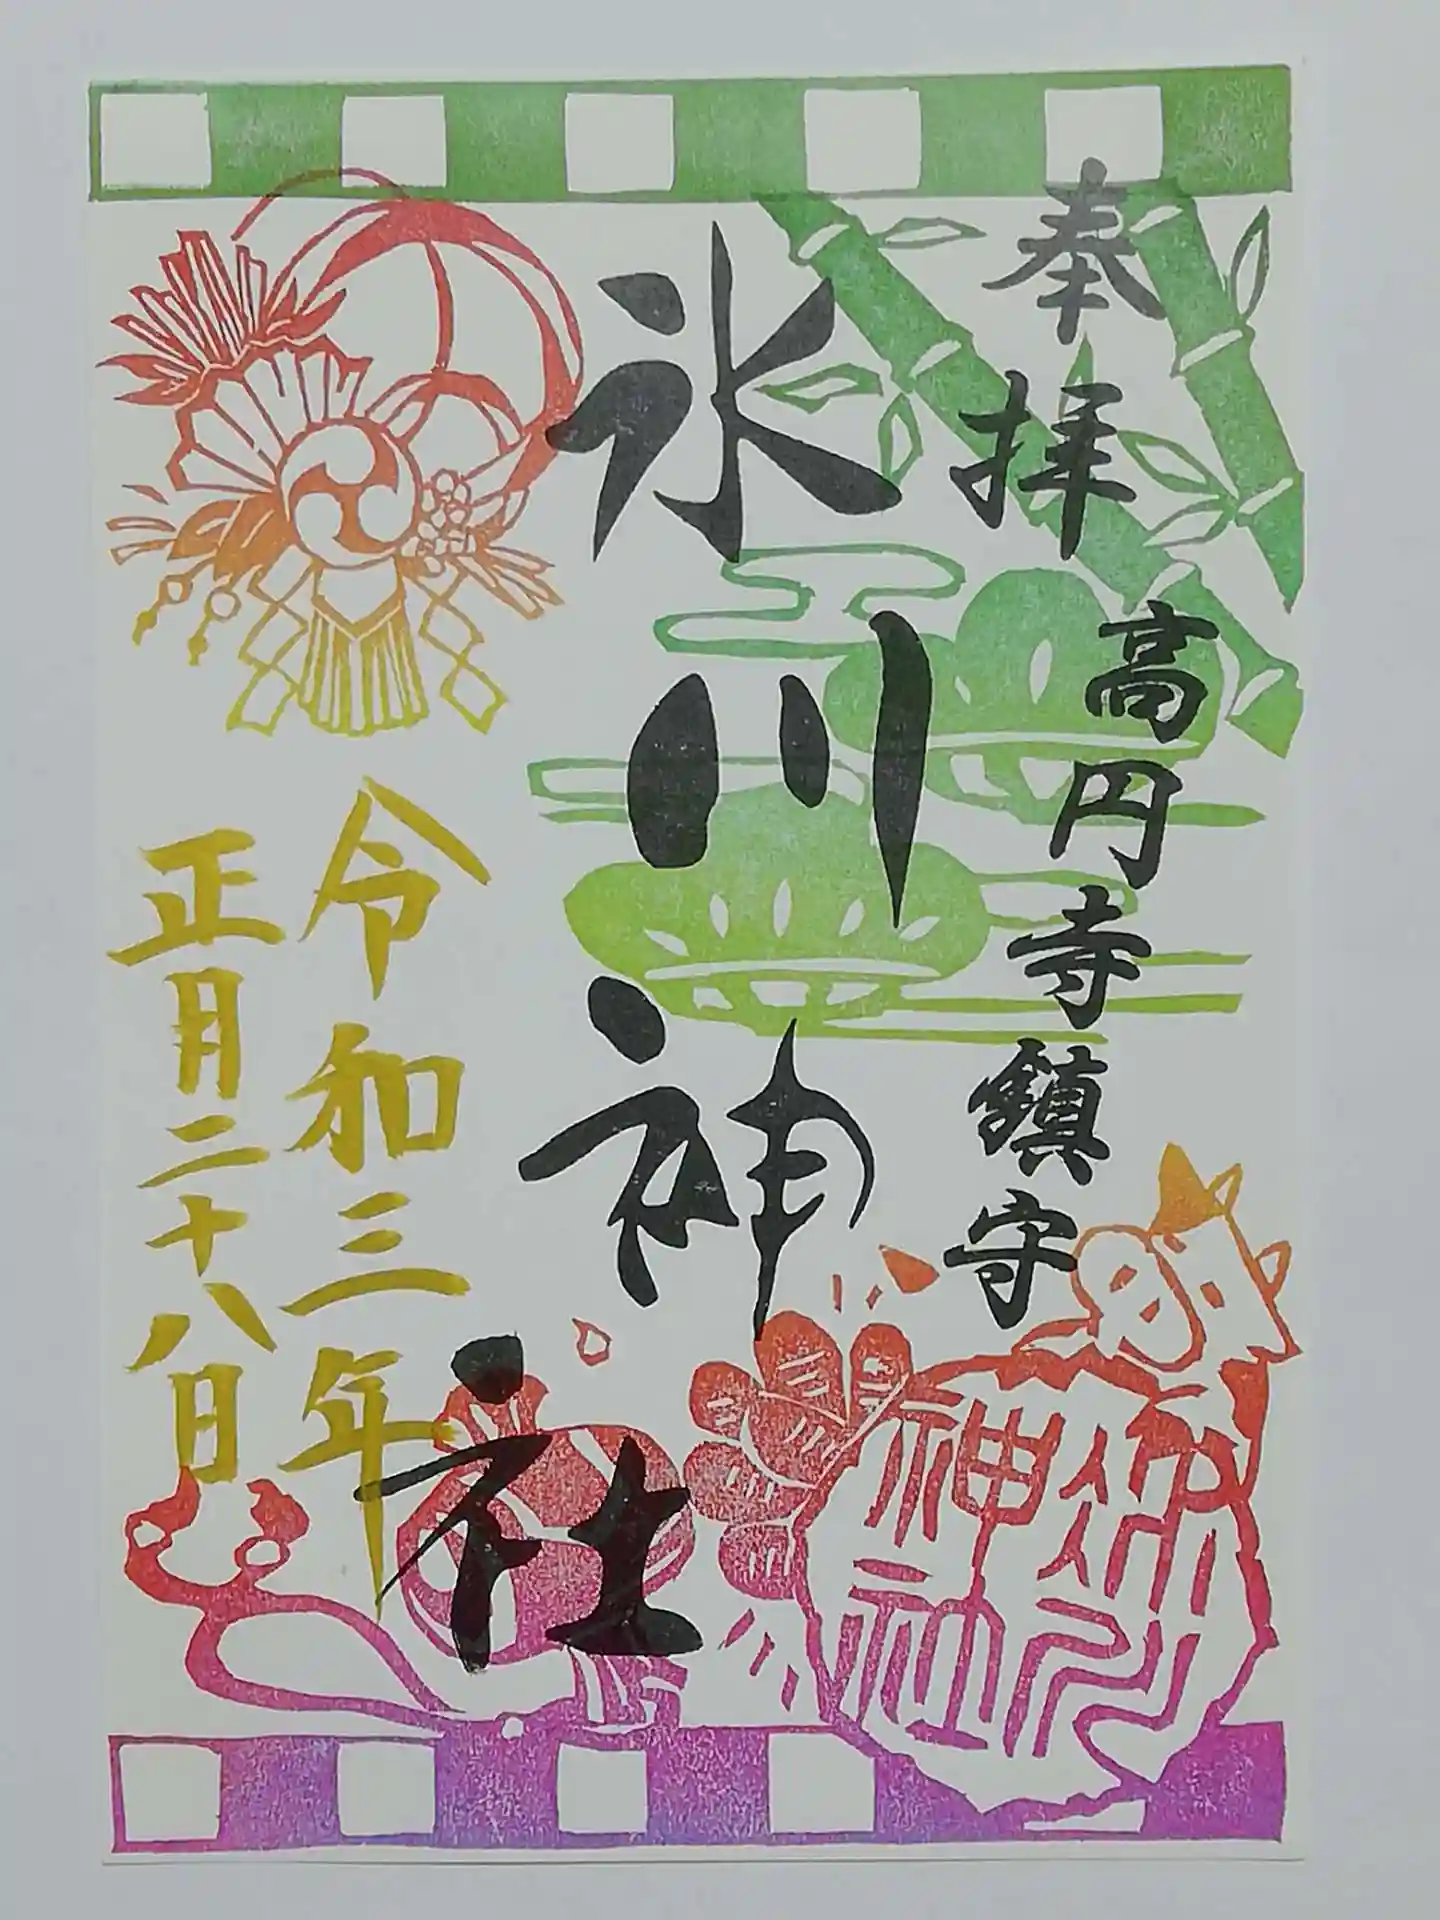 奉拝
高円寺鎮守
氷川神社
令和三年
正月二十八日